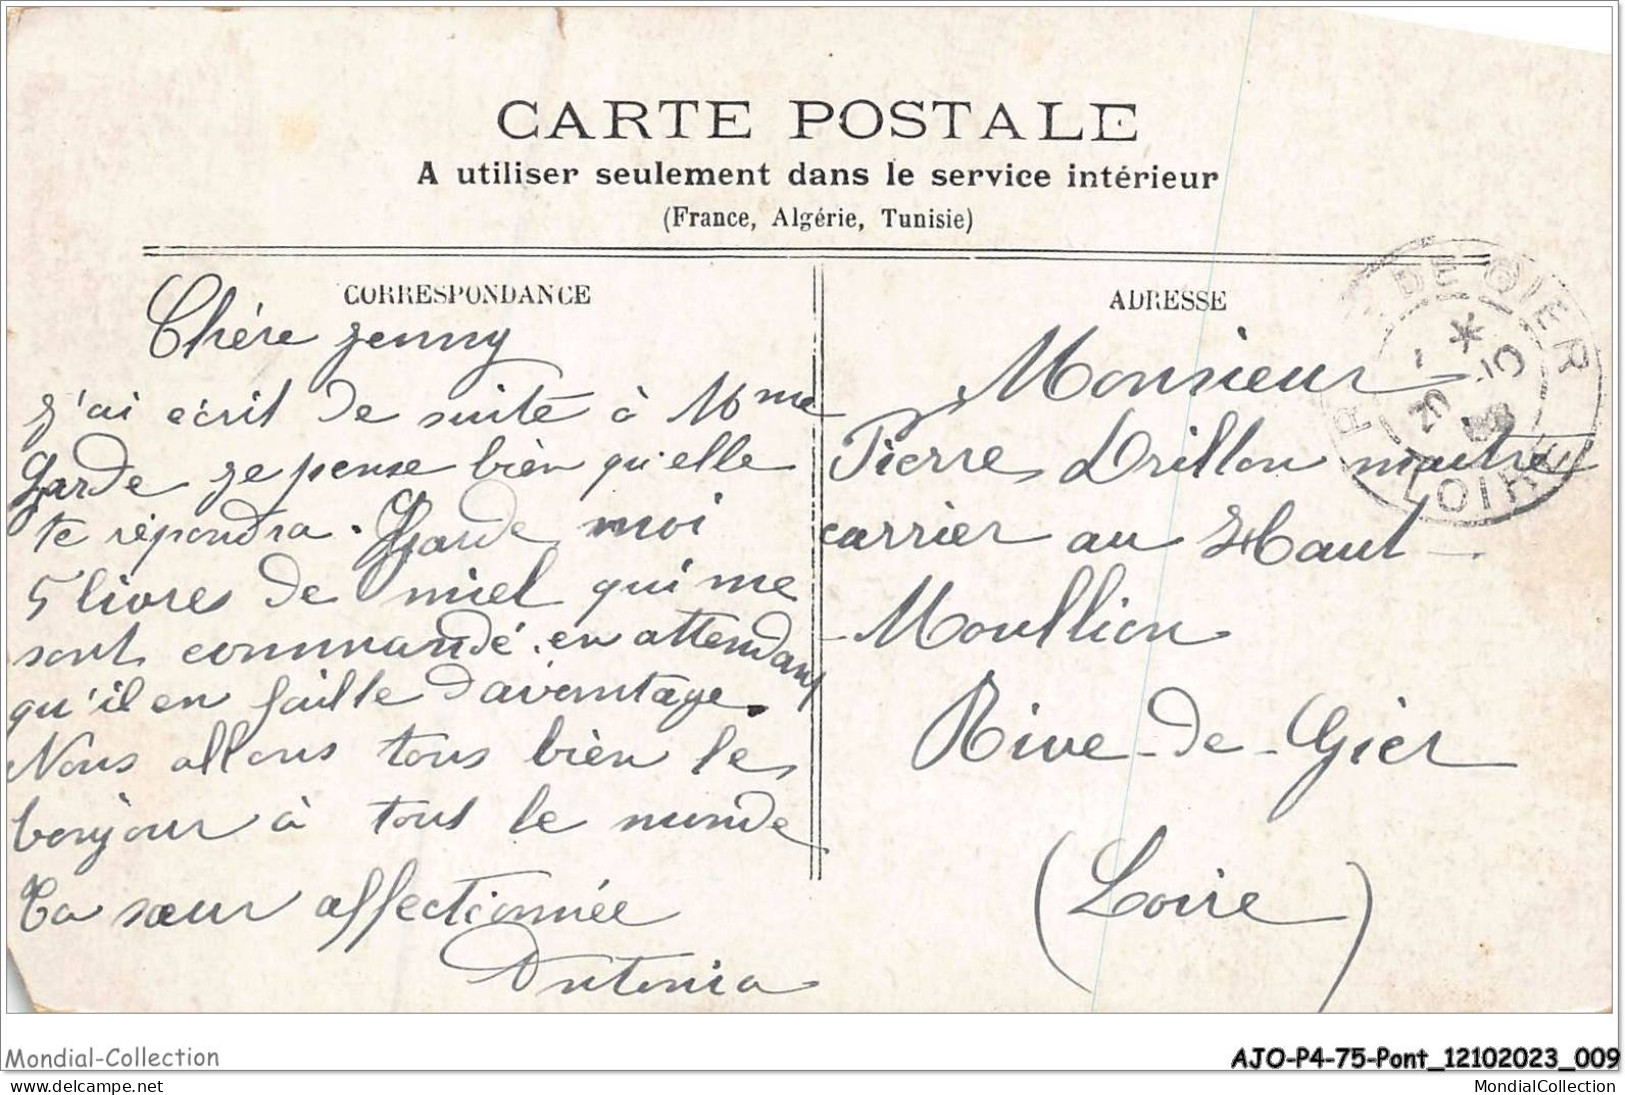 CARTE POSTALE
A utiliser seulement dans le service intérieur
(France, Algérie, Tunisie)
CORRESPONDANCE
Chére jenny
j'ai écrit de suite à Mme
Garde je pense bien qu'elle
te répondra. Garde moi
5 livres de miel qui me
sont commandé en attendant
qu'il en faille d'avantage.
Nous allons tous bien le
bonjour à tous le monde
Ta sœur affectionnée
Antonia
ADRESSE
Monsieur
Pierre Drillon maitre
carrier au Haut
Moullion
Rive-de-Gier
(Loire)
DE GIER
LOIRE
Mondial-Collection
AJO-P4-75-Pont_12102023_009
MondialCollection
www.delcampe.net